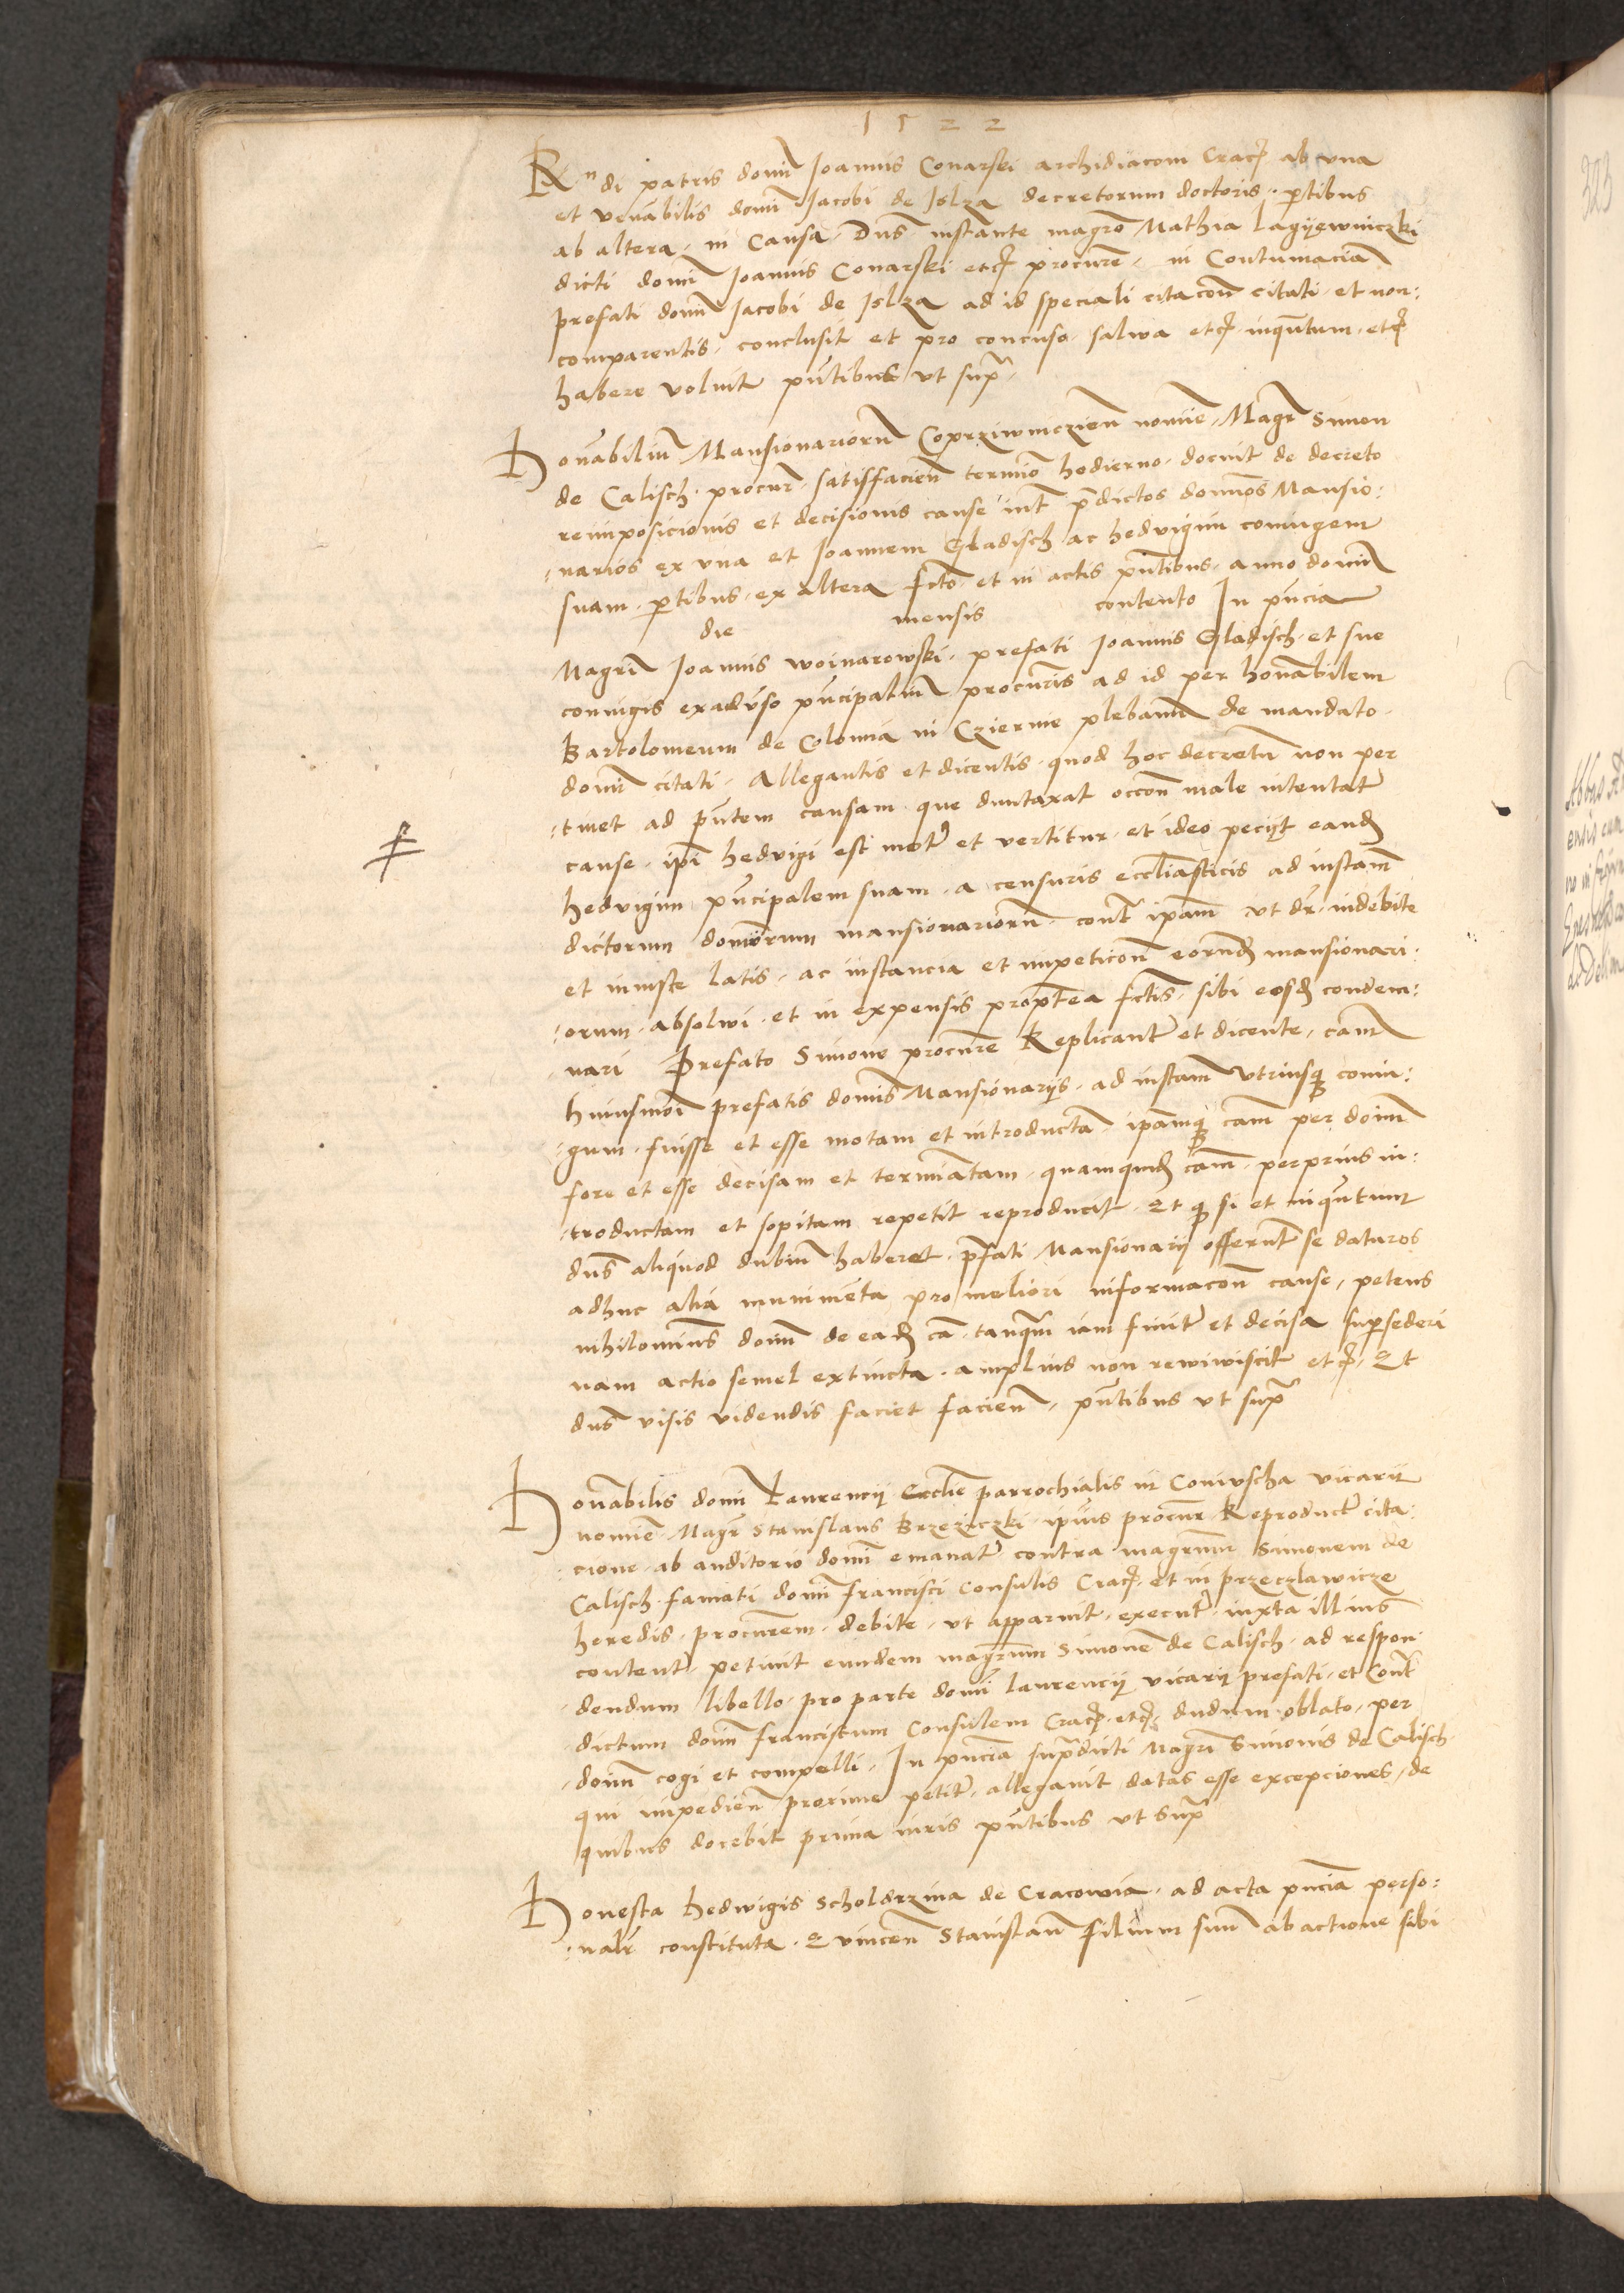 1522
Rndi patris domi Joannis Conarski archidiaconi Crac ab vna
et venabilis domi Jacobi de Islza decretorum doctoris ptibus
ab altera, in Causa, Dns instante magro Mathia Lagyewniczki
dicti domi Joannis Conarski etc procure, in Contumaciam
prefati domi Jacobi de Islza ad id speciali citacon citati et non:
comparentis, conclusit et pro concuso, salwa etc inqntum etc
habere voluit pntibus vt supra
Honabilium Mansionariorum Coprziwniczien nomine, Magr Simon
de Calisch procur, satisffacien termino hodierno, docuit de decreto
reimposicionis et decisionis cause int pdictos dominos Mansio:
:narios ex vna et Joannem Gladisch ac hedvigim coniugem
suam ptibus, ex altera fcto et in actis pntibus, anno domini
die mensis contento In pncia
Magri Joannis woinarowski, prefati Joannis Gladisch et sue
coniugis exadverso pncipalium procuris ad id per honabilem
Bartolomeum de Colonia in Cziernie plebanum de mandato
domi citati, Allegantis et dicentis, quod hoc decretum non per
:tinet ad pntem causam que duntaxat occon male intentate
cause, ipi hedvigi est mota et vertitur, et ideo peciit eand
hedvigim pncipalem suam, a censuris eccliasticis ad instam
dictorum dominorum mansionariorum, cont ipam vt dr, indebite
et iniuste latis, ac instancia et impeticon eorund mansionari:
:orum, absolwi, et in expensis proptea fctis, sibi eosd condem:
:nari Prefato Simone procure Replicante et dicente, cam
huiusmoi prefatis dominis Mansionarys, ad instam vtriusq coniu:
:gum, fuisse et esse motam et introductam, ipamq cam per domi
fore et esse decisam et terminatam, quamquid cam, perprius in:
:troductam et sopitam repetit reproducit, Et q si et inquntum
dns aliquod dubium haberet, pfati Mansionary offerunt se daturos
adhuc alia munimenta pro meliori informacon cause, petens
nihilominus domi de ead ca, tanqm iam finita et decisa supersederi
nam actio semel extincta, amplius non rewiwiscit etc, Et
dns visis videndis faciet facien, pntibus vt supra
Honabilis domi Laurency Ecclie parrochialis in Coniuscha vicary
nomine, Magr Stanislaus Brzeziczki ipius procur, Reproducta cita:
:cione, ab auditorio domi emanata contra magrum Simonem de
Calisch, famati domi francisci Consulis Crac et in przeczlawicze
heredis, procurem, debite, vt apparuit, executa, iuxta illius
content, petiuit eundem magrum Simone de Calisch, ad respon:
:dendum libello, pro parte domi laurency vicary prefati, et Cont
dictum domi franciscum Consulem Crac etc, dudum oblato, per
domi cogi et compelli, In pncia supradicti Magri Simonis de Calisch
qui impedien proxime petita, allegauit datas esse excepciones, de
quibus docebit prima iuris pntibus vt Supra
Honesta Hedwigis Scholdrzina de Cracowia, ad acta pncia perso:
:nalr constituta, Stanislaum filium suum ab actione sibi